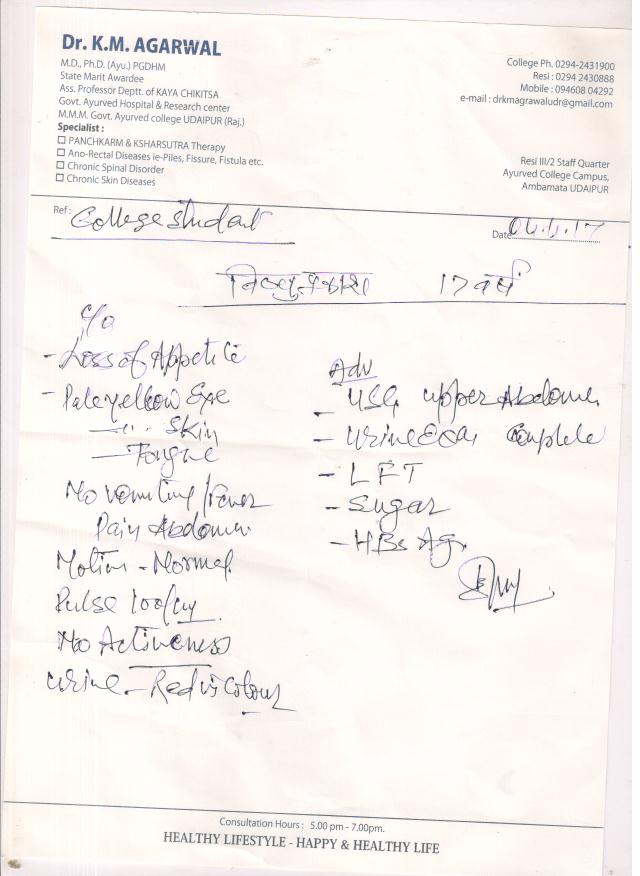 Dr. K.M. AGARWAL
M.D., Ph.D. (Ayu.) PGDHM
State Marit Awardee
Ass. Professor Deptt. of KAYA CHIKITSA
Govt. Ayurved Hospital & Research center
M.M.M. Govt. Ayurved college UDAIPUR (Raj.)
Specialist :
PANCHKARM & KSHARSUTRA Therapy
Ano-Rectal Diseases ie-Piles, Fissure, Fistula etc.
Chronic Spinal Disorder
Chronic Skin Diseases
College Ph. 0294-2431900
Resi : 0294 2430888
Mobile : 094608 04292
e-mail : drkmagrawaludr@gmail.com
Resi III/2 Staff Quarter
Ayurved College Campus,
Ambamata UDAIPUR
Ref : College student
Date 04.1.17
17 वर्ष
C/o
- Loss of Appetite
- Pale yellow Eye
— " — Skin
— Tongue
No vomiting / Fever
Pain Abdomen
Motion - Normal
Pulse 100/
No Activeness
Urine - Redis Colour
Adv
- USG upper Abdomen
- Urine Exa. Complete
- LFT
- Sugar
- HBs Ag.
Consultation Hours : 5.00 pm - 7.00pm.
HEALTHY LIFESTYLE - HAPPY & HEALTHY LIFE